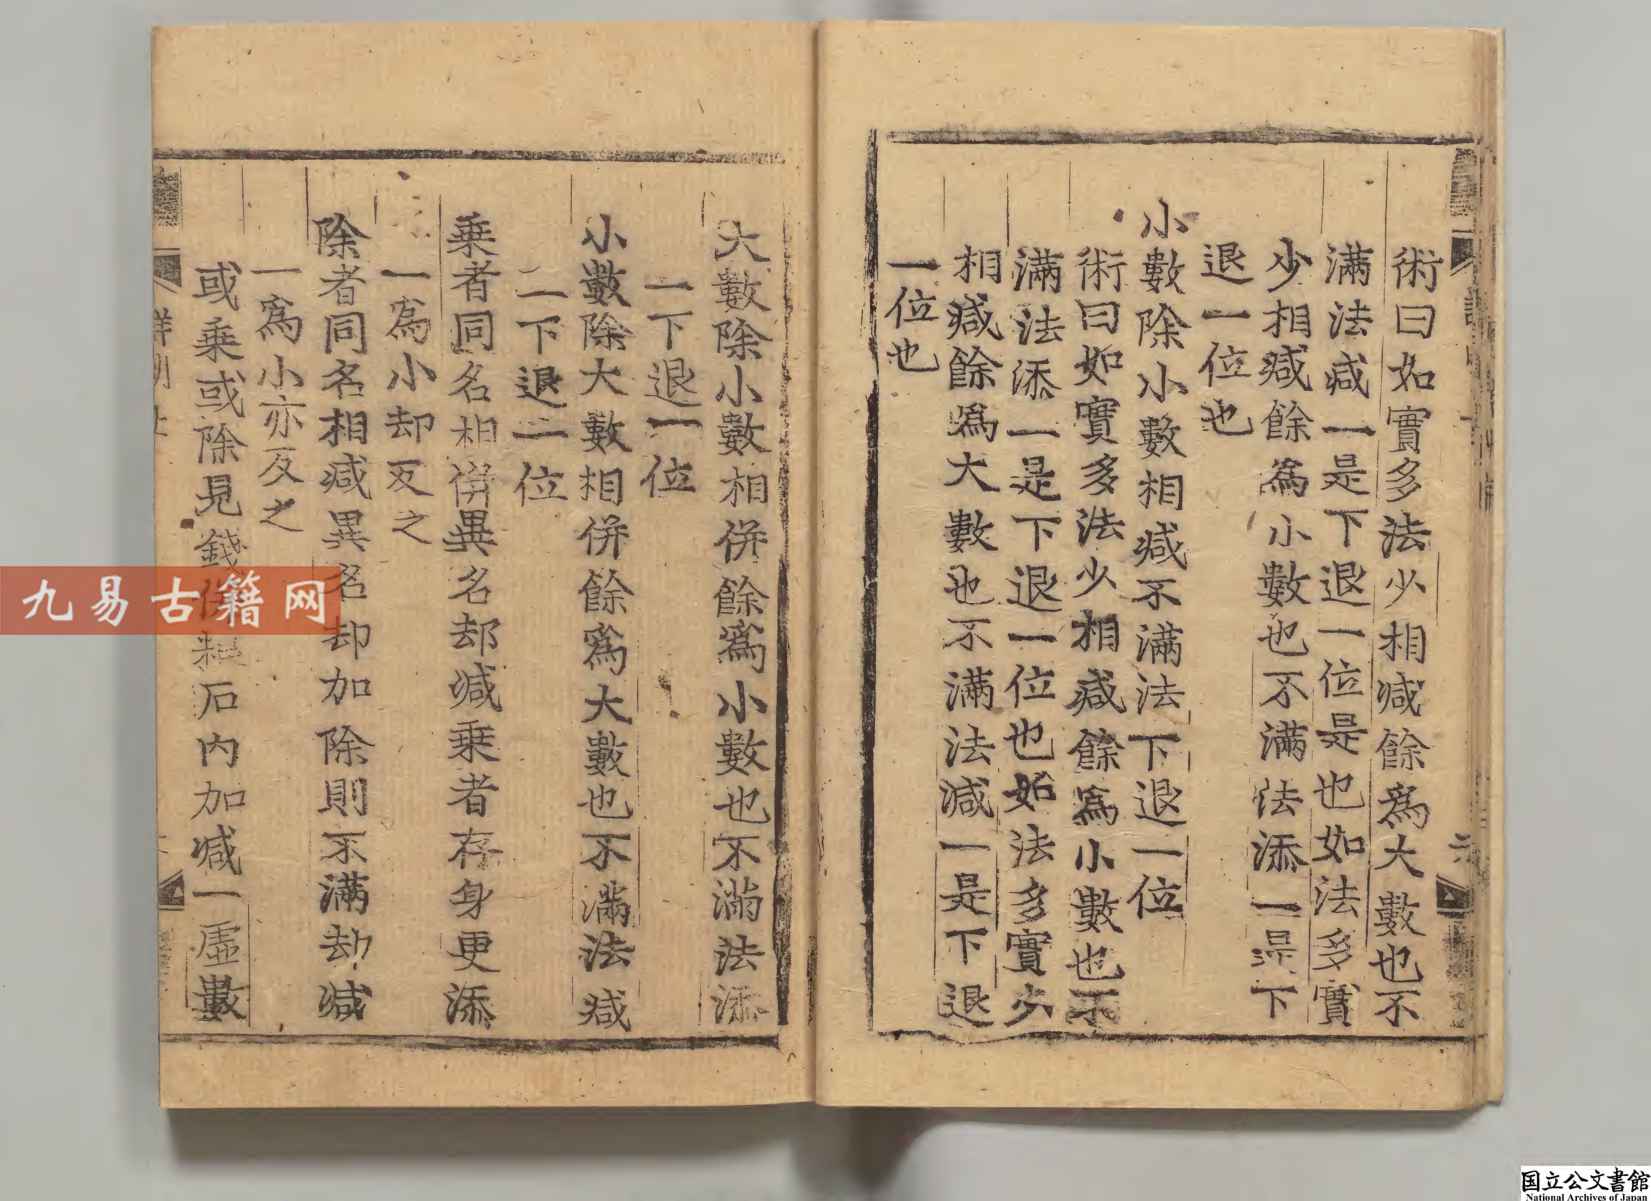 術曰如實多法少相减餘爲大數也不
滿法减一是下退一位是也如法多實
少相减餘爲小數也不滿法添一是下
退一位也
小數除小數相减不滿法下退一位
術曰如實多法少相减餘爲小數也不
滿法添一是下退一位也如法多實少
相减餘爲大數也不滿法减一是下退
一位也
大數除小數相併餘爲小數也不滿法添
一下退一位
小數除大數相併餘爲大數也不滿法减
一下退一位
乘者同名相併異名却减乘者存身更添
一爲小却反之
除者同名相减異名却加除則不滿劫减
一爲小亦反之
或乘或除見錢併糧石内加减一虛數
詳明
九易古籍网
国立公文書館
National Archives of Japan